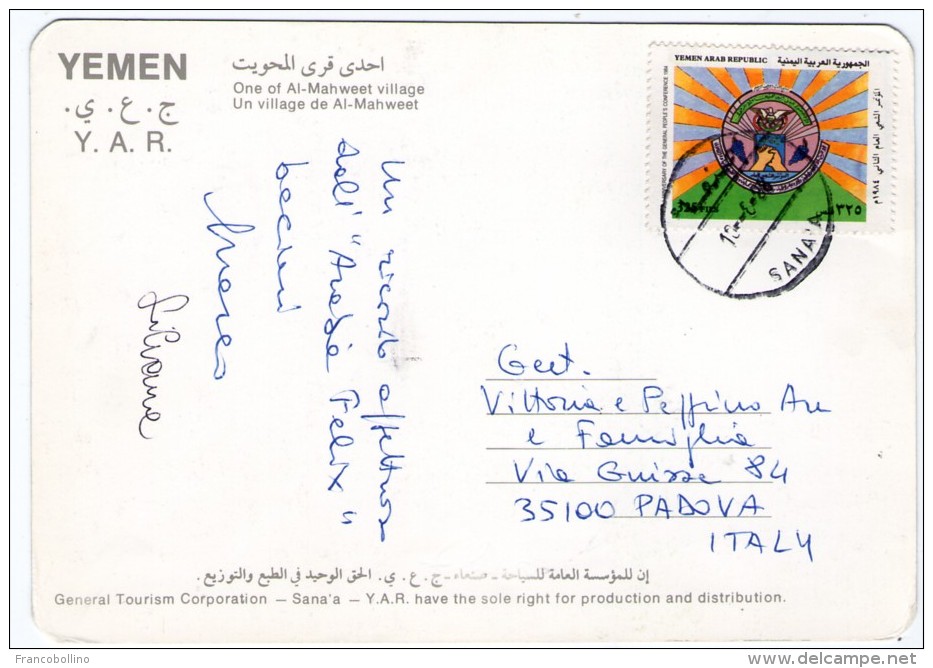 YEMEN
ج . ع . ي .
Y. A. R.
احدى قرى المحويت
One of Al-Mahweet village
Un village de Al-Mahweet
YEMEN ARAB REPUBLIC الجمهورية العربية اليمنية
ANNIVERSARY OF THE GENERAL PEOPLE'S CONFERENCE 1984
المؤتمر الشعبي العام الثاني ١٩٨٤م
٣٢٥
SANA'A
Un ricordo affettuoso
dall' "Arabia Felix"
bacioni
Marco
Liliana
Gent.
Vittoria e Peppino
e Famiglia
Via 84
35100 PADOVA
ITALY
إن للمؤسسة العامة للسياحة - صنعاء - ج . ع . ي. الحق الوحيد في الطبع والتوزيع .
General Tourism Corporation — Sana'a — Y.A.R. have the sole right for production and distribution.
Francobollino
delcampe.net